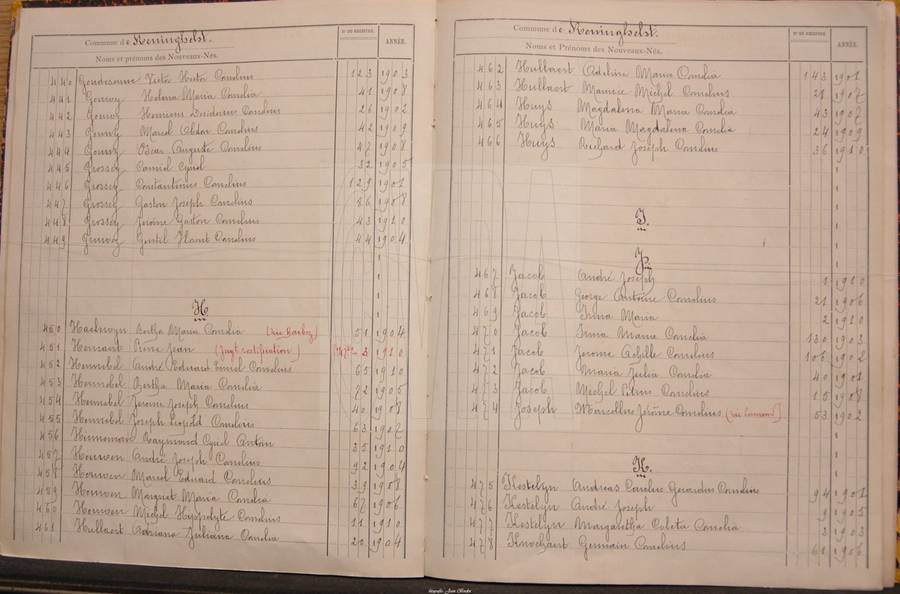 Commune de Reninghelst.
Noms et prénoms des Nouveaux-Nés.
N° DU REGISTRE
ANNÉE.
440 Victor Cornelius 123 1903
441 Helena Maria Cornelia 41 1908
442 Cornelius 26 1902
443 Marcel Abdon Cornelius 42 1909
444 Oscar Auguste Cornelius 47 1908
445 Grossey Camiel Cyriel 32 1905
446 Grossey Constantinus Cornelius 129 1901
447 Grossey Gaston Joseph Cornelius 86 1908
448 Grossey Jérôme Gaston Cornelius 43 1910
449 Gentil Cornelius 44 1904
H
450 Bertha Maria Cornelia 51 1904
451 Jean 1910
452 Hennebel André Edouard Cornelius 65 1910
453 Hennebel Bertha Maria Cornelia 72 1905
454 Hennebel Jérôme Joseph Cornelius 40 1908
455 Hennebel Joseph Leopold Cornelius 63 1907
456 Raymond Cyriel 35 1910
457 Houwen André Joseph Cornelius 92 1904
458 Houwen Marcel Eduard Cornelius 39 1908
459 Houwen Margriet Maria Cornelia 67 1906
460 Houwen Michel Hyppolyte Cornelius 11 1910
461 Hullaert Adriana Juliana Cornelia 20 1904
Commune de Reninghelst.
Noms et Prénoms des Nouveaux-Nés.
N° DU REGISTRE
ANNÉE.
462 Hullaert Adeline Maria Cornelia 143 1901
463 Hullaert Maurice Michel Cornelius 21 1907
464 Huys Magdalena Maria Cornelia 43 1907
465 Huys Maria Magdalena Cornelia 24 1909
466 Huys Richard Joseph Cornelius 36 1910
I.
J.
467 Jacob André Joseph 1 1910
468 Jacob George Antoine Cornelius 21 1906
469 Jacob Irma Maria 2 1910
470 Jacob Irma Maria Cornelia 130 1903
471 Jacob Jerome Achille Cornelius 106 1902
472 Jacob Maria Julia Cornelia 40 1901
473 Jacob Michel Cornelius 15 1908
474 Joseph Marcellus Jérôme Cornelius 53 1902
K.
475 Kestelyn Andreas Carolus Gerardus Cornelius 94 1901
476 Kestelyn André Joseph 9 1905
477 Kestelyn Margaretha Coleta Cornelia 3 1903
478 Knockaert Germain Cornelius 61 1906